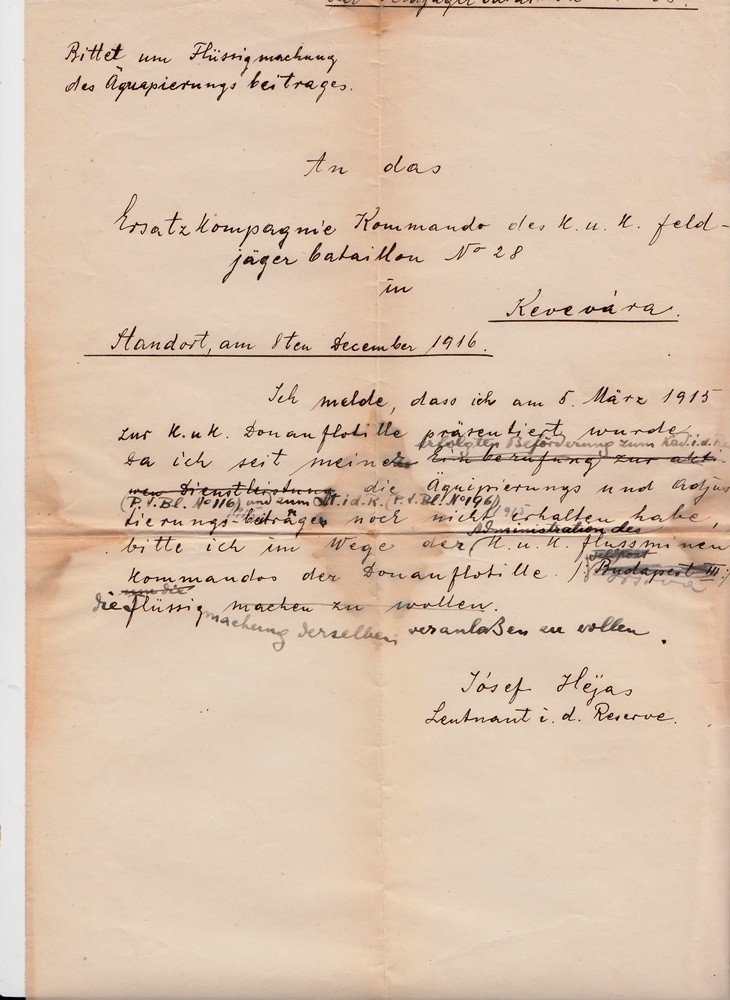 Bittet um Flüssigmachung
des Äquapierungs beitrages.
An das
Ersatzkompagnie Kommando des K. u. K. feld-
jäger bataillon No 28
in
Kevevára.
Standort, am 8ten December 1916.
Ich melde, dass ich am 5. März 1915
zur K.u.K. Donauflotille präsentiert wurde
erfolgten Beförderung zum Kad. i. d. Re
Da ich seit meiner Einberufung zur akti-
ven Dienstleistung die Äquipierungs und Adjus
(P. V. Bl. No 116) und zum Lt. i. d. R. (P. V. Bl. No 196)
tierungs-beiträge noch nicht erhalten habe,
Administration des
bitte ich im Wege der K.u.K. flussminen
Feldpost
Kommandos der Donauflotille. /: Budapest III :/
Orsova
um die
die flüssig machen zu wollen.
machung derselben veranlaßen zu wollen.
Jósef Héjas
Leutnant i. d. Reserve.